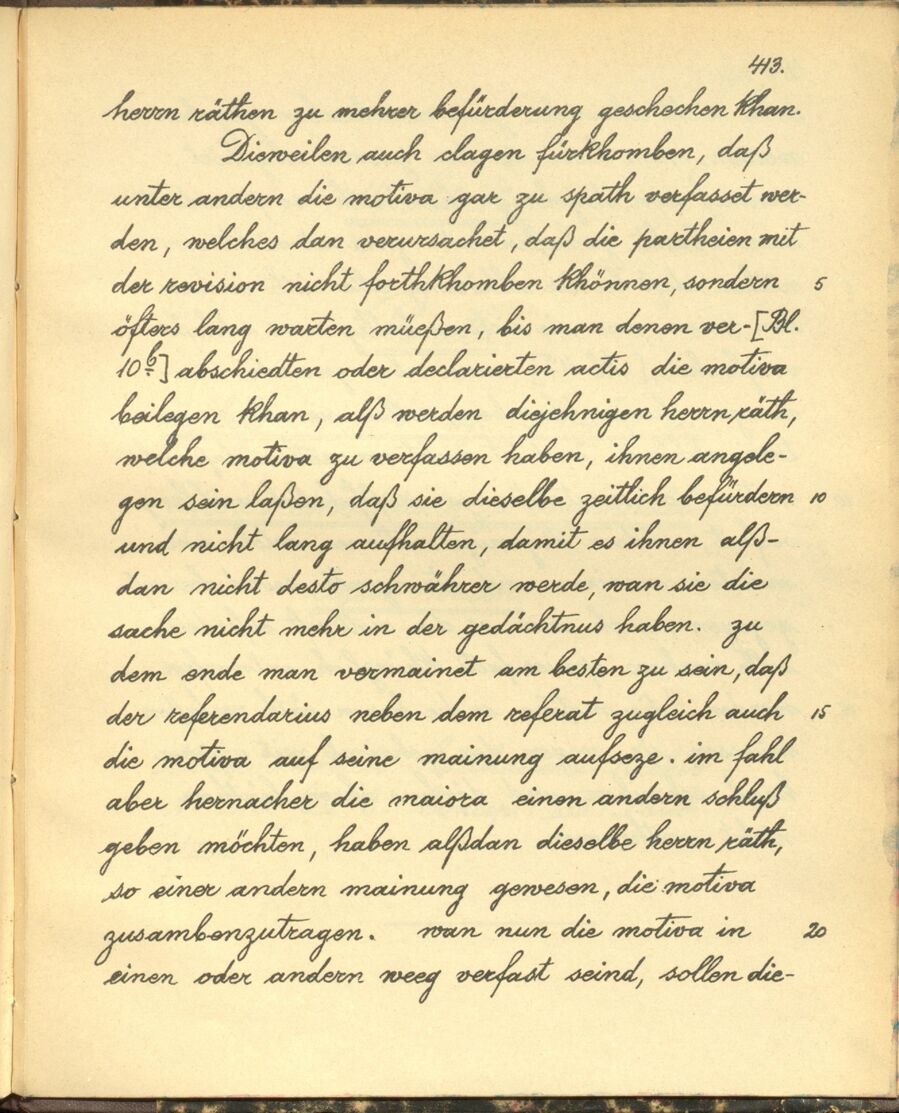 413.
herrn räthen zu mehrer befürderung geschechen khan.
Dieweilen auch clagen fürkhomben, daß
unter andern die motiva gar zu spath verfasset wer-
den, welches dan verursachet, daß die partheien mit
der revision nicht forthkhomben khönnen, sondern 5
öfters lang warten müeßen, bis man denen ver-[Bl.
10b] abschiedten oder declarierten actis die motiva
beilegen khan, alß werden diejehnigen herrn räth,
welche motiva zu verfassen haben, ihnen angele-
gen sein laßen, daß sie dieselbe zeitlich befürdern 10
und nicht lang aufhalten, damit es ihnen alß-
dan nicht desto schwährer werde, wan sie die
sache nicht mehr in der gedächtnus haben. zu
dem ende man vermainet am besten zu sein, daß
der referendarius neben dem referat zugleich auch 15
die motiva auf seine mainung aufseze. im fahl
aber hernacher die maiora einen andern schluß
geben möchten, haben alßdan dieselbe herrn räth,
so einer andern mainung gewesen, die motiva
zusambenzutragen. wan nun die motiva in 20
einen oder andern weeg verfast seind, sollen die-